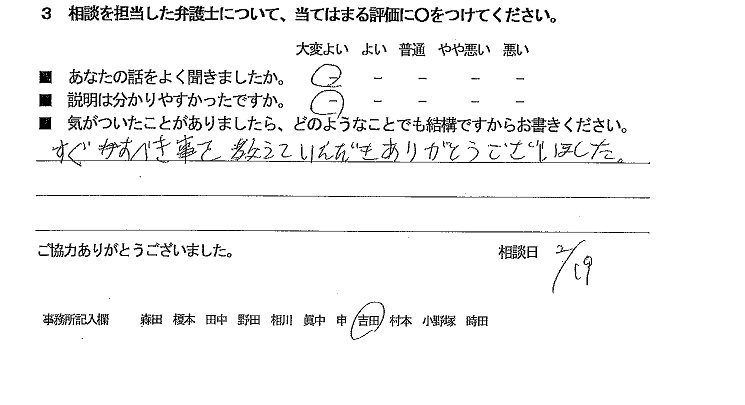 3 相談を担当した弁護士について、当てはまる評価に〇をつけてください。
大変よい よい 普通 やや悪い 悪い
■ あなたの話をよく聞きましたか。 - - - - -
■ 説明は分かりやすかったですか。 - - - - -
■ 気がついたことがありましたら、どのようなことでも結構ですからお書きください。
すぐやすべき事を教えていただきありがとうございました。
ご協力ありがとうございました。 相談日 2/19
事務所記入欄 森田 榎本 田中 野田 相川 眞中 申 吉田 村本 小野塚 時田